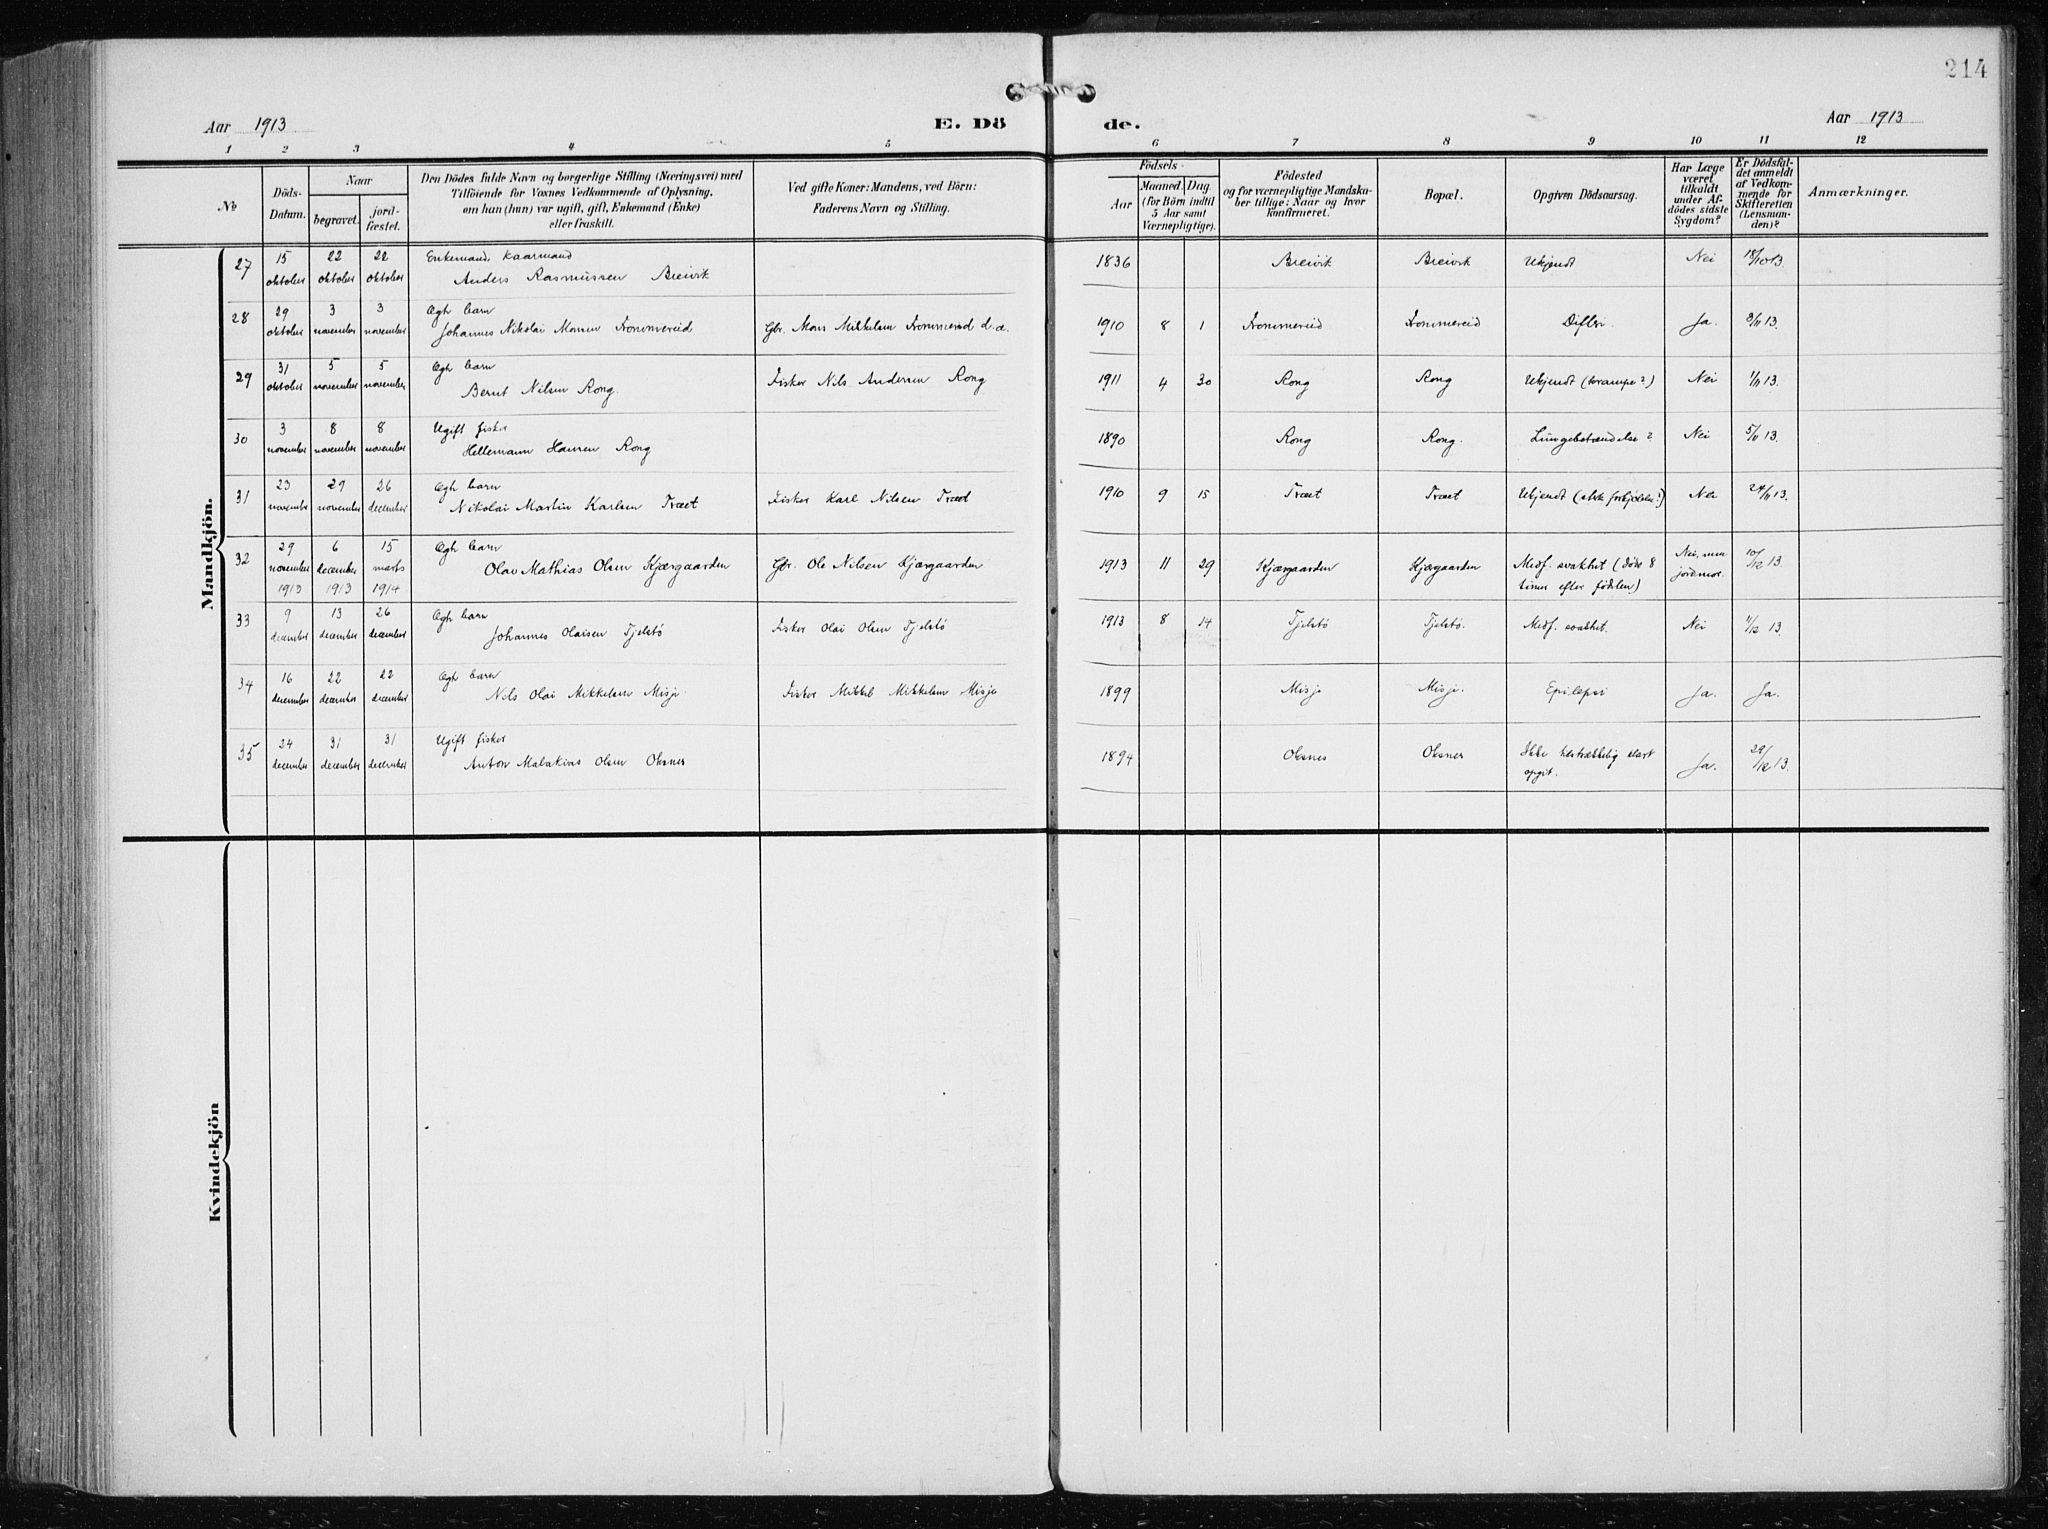 214
Aar 1913 E. Dö de. Aar 1913
1 2 3 4 5 6 7 8 9 10 11 12
№
Döds-Datum.
Naar
begravet. jordfæstet.
Den Dödes fulde Navn og borgerlige Stilling (Næringsvei) med Tilföiende for Voxnes Vedkommende af Oplysning, om han (hun) var ugift, gift, Enkemand (Enke) eller fraskilt.
Ved gifte Koner: Mandens, ved Börn: Faderens Navn og Stilling.
Födsels-
Aar Maaned. Dag.
(for Börn indtil 5 Aar samt Værnepligtige).
Födested og for værnepligtige Mandskaber tillige: Naar og hvor konfirmeret.
Bopæl.
Opgiven Dödsaarsag.
Har Læge været tilkaldt under Afdödes sidste Sygdom?
Er Dödsfaldet anmeldt af Vedkommende for Skifteretten (Lensmanden)?
Anmærkninger.
Mandkjön.
27 15 oktober 22 oktober 22 oktober Enkemand, kaarmand
Anders Rasmussen Breivik 1836 Breivik Breivik Ukjendt Nei 18/10 13.
28 29 oktober 3 november 3 november Egh barn
Johannes Nikolai Monsen Trommereid Gbr. Mons Mikkelsen Trommereid 1910 8 1 Trommereid Trommereid Difteri Ja. 3/11 13.
29 31 oktober 5 november 5 november Egh barn
Bernt Nilsen Rong. Fisker Nils Andersen Rong 1911 4 30 Rong Rong Ukjendt (krampe?) Nei 1/11 13.
30 3 november 8 november 8 november Ugift fisker
Hellemann Hansen Rong 1890 Rong Rong. Lungebetændelse? Nei 5/11 13.
31 23 november 29 november 26 december Egh barn
Nikolai Martin Karlsen Træet Fisker Karl Nilsen Træet 1910 9 15 Træet Træet Ukjendt (sterk forkjølelse?) Nei 24/11 13.
32 29 november 1913 6 december 1913 15 marts 1914 Egh barn
Olav Mathias Olsen Kjærgaarden Gbr. Ole Nilsen Kjærgaarden 1913 11 29 Kjærgaarden Kjærgaarden Medf. svakhet (døde 8 timer efter fødslen) Nei, men jordmor. 10/12 13.
33 9 december 13 december 26 december Egh barn
Johannes Olaisen Tjelstø Fisker Olai Olsen Tjelstø 1913 8 14 Tjelstø Tjelstø. Medf. svakhet. Nei 11/12 13.
34 16 december 22 december 22 december Egh barn
Nils Olai Mikkelsen Misje. Fisker Mikkel Mikkelsen Misje 1899 Misje Misje. Epilepsi Ja. Ja.
35 24 december 31 december 31 december Ugift fisker
Anton Malakias Olsen Oksnes 1894 Oksnes Oksnes Ikke tilstrækkelig klart opgit. Ja. 29/12 13.
Kvindekjön